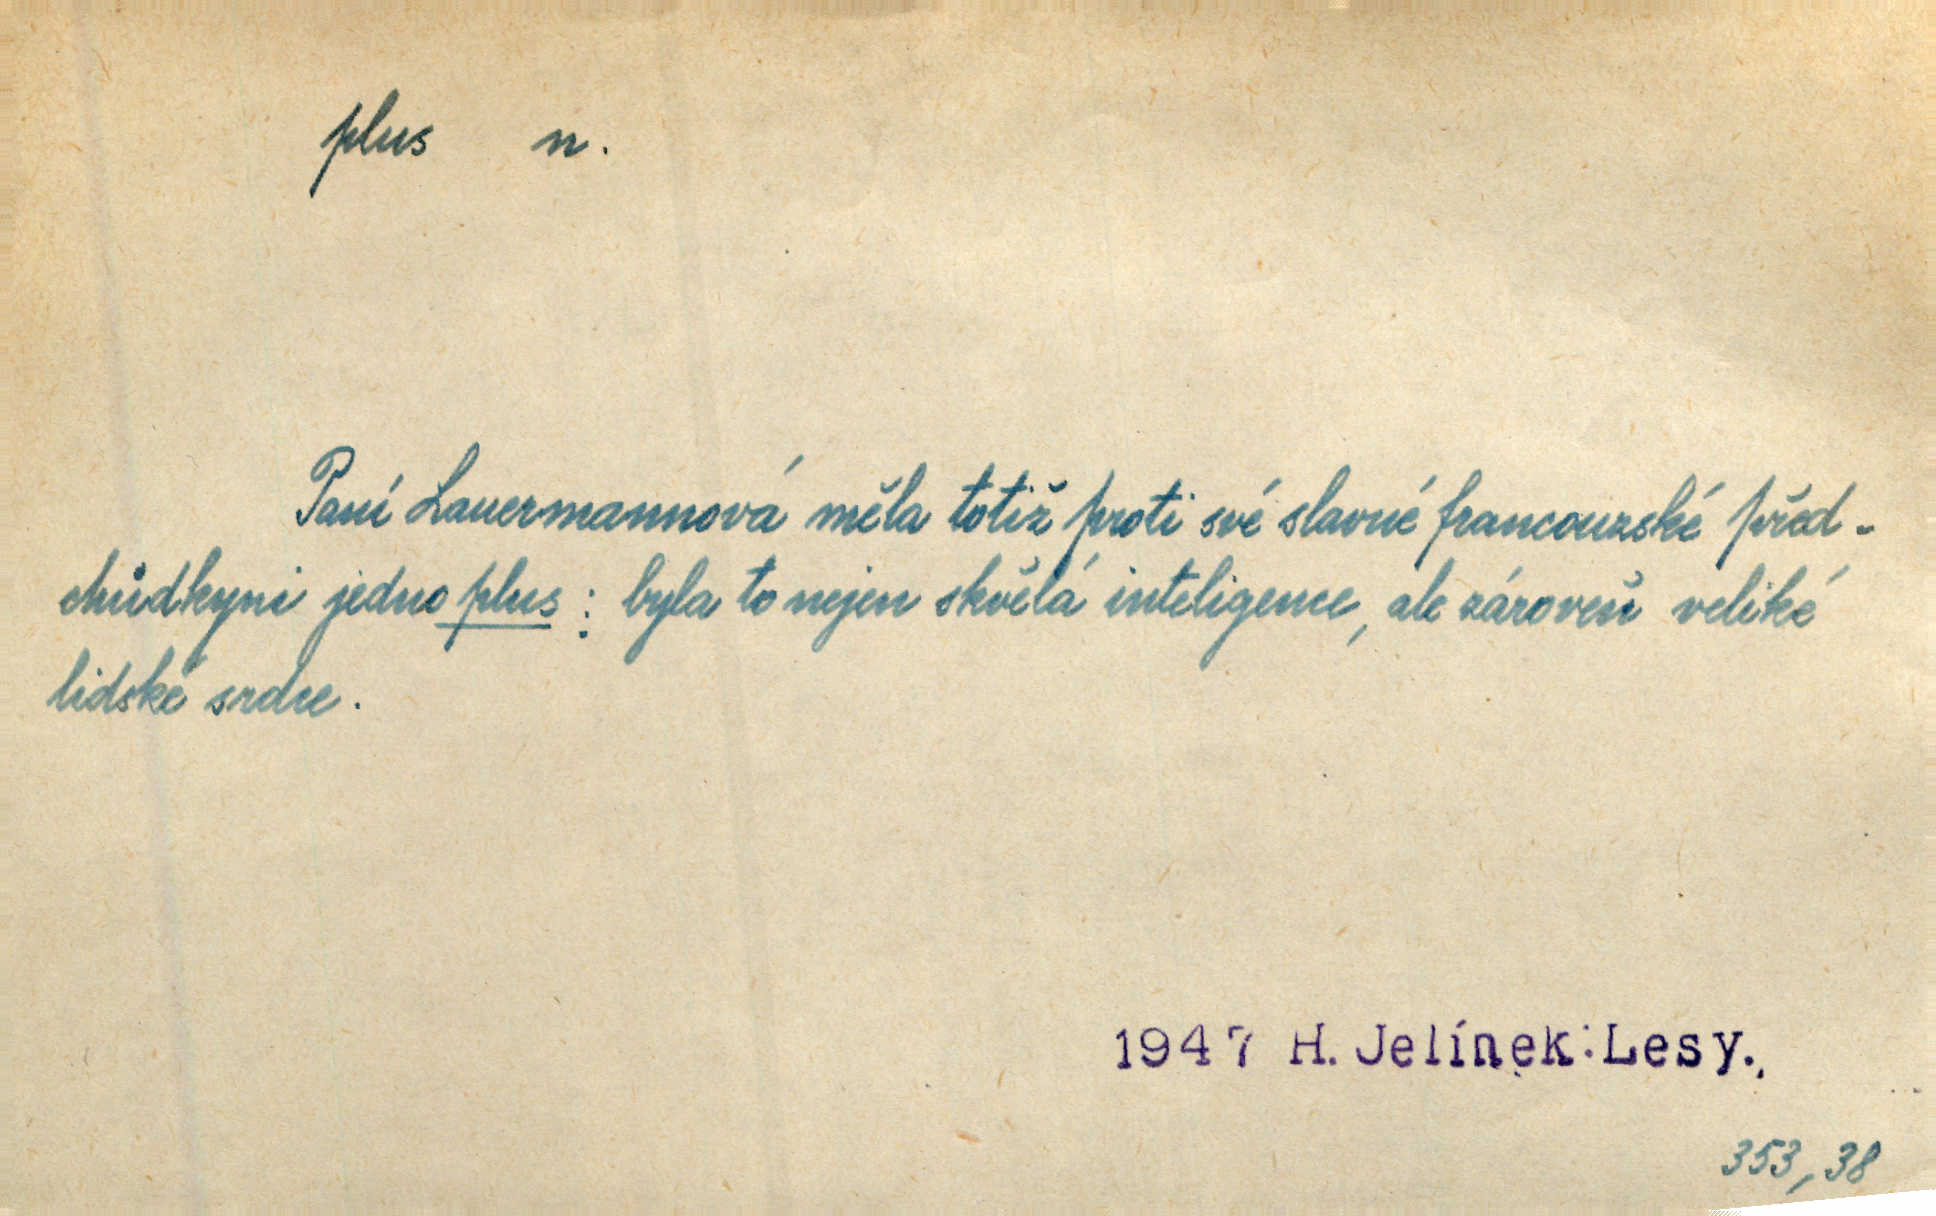 plus n.
Paní Lauermannová měla totiž proti své slavné francouzské před-
chůdkyni jedno plus: byla to nejen skvělá inteligence, ale zároveň veliké
lidské srdce.
1947 H. Jelínek: Lesy.
353,38